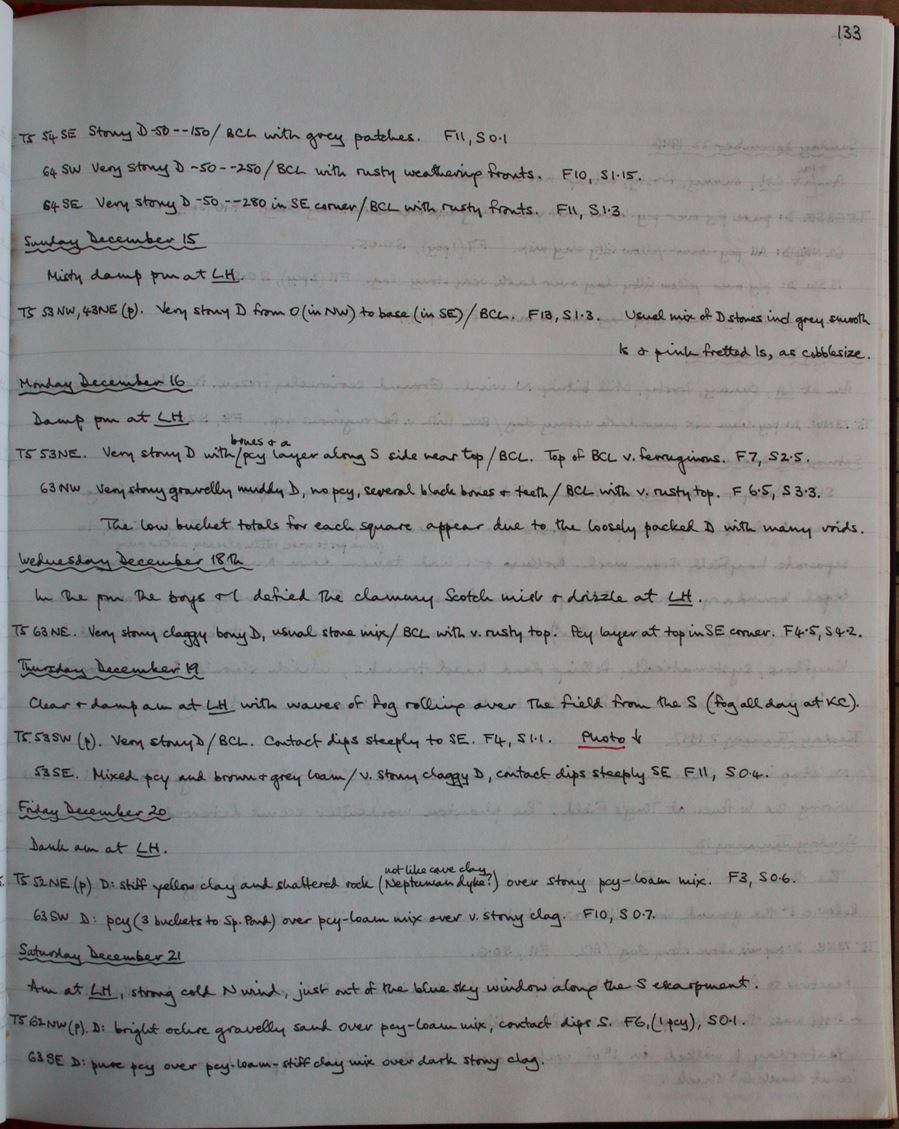 133
T5 54 SE Stony D -50 - -150 / BCL with grey patches. F11, S 0.1
64 SW Very stony D -50 - -250 / BCL with rusty weathering fronts. F10, S1.15.
64 SE Very stony D -50 - -280 in SE corner / BCL with rusty fronts. F11, S.1.3.
Sunday December 15
Misty damp pm at LH.
T5 53 NW, 43NE (p). Very stony D from 0 (in NW) to base (in SE) / BCL. F13, S1.3. Usual mix of D stones incl grey smooth
ls & pink fretted ls, as cobblesize.
Monday December 16
Damp pm at LH
bones & a
T5 53NE. Very stony D with / pcy layer along S side near top / BCL. Top of BCL v. ferruginous. F7, S2.5.
63 NW Very stony gravelly muddy D, no pcy, several black bones & teeth / BCL with v. rusty top. F 6.5, S 3.3.
The low bucket totals for each square appear due to the loosely packed D with many voids.
Wednesday December 18th
In the pm the boys & I defied the clammy Scotch mist & drizzle at LH.
T5 63 NE. Very stony claggy bony D, usual stone mix / BCL with v. rusty top. Pcy layer at top in SE corner. F4.5, S4.2.
Thursday December 19
Clear & damp am at LH with waves of fog rolling over the field from the S (fog all day at KC).
T5 53SW (p). Very stony D / BCL. Contact dips steeply to SE. F4, S1.1. Photo ↓
53SE. Mixed pcy and brown & grey loam / v. stony claggy D, contact dips steeply SE F11, S 0.4.
Friday December 20
Dank am at LH.
not like cave clay
T5 52NE (p) D: stiff yellow clay and shattered rock (Neptunian dyke?) over stony pcy-loam mix. F3, S 0.6.
63 SW D: pcy (3 buckets to Sp. Pond) over pcy-loam mix over v. stony clag. F10, S 0.7.
Saturday December 21
Am at LH, strong cold N wind, just out of the blue sky window along the S escarpment.
T5 62NW (p). D: bright ochre gravelly sand over pcy-loam mix, contact dips S. F6, (1 pcy), S0.1.
63 SE D: pure pcy over pcy-loam-stiff clay mix over dark stony clag.